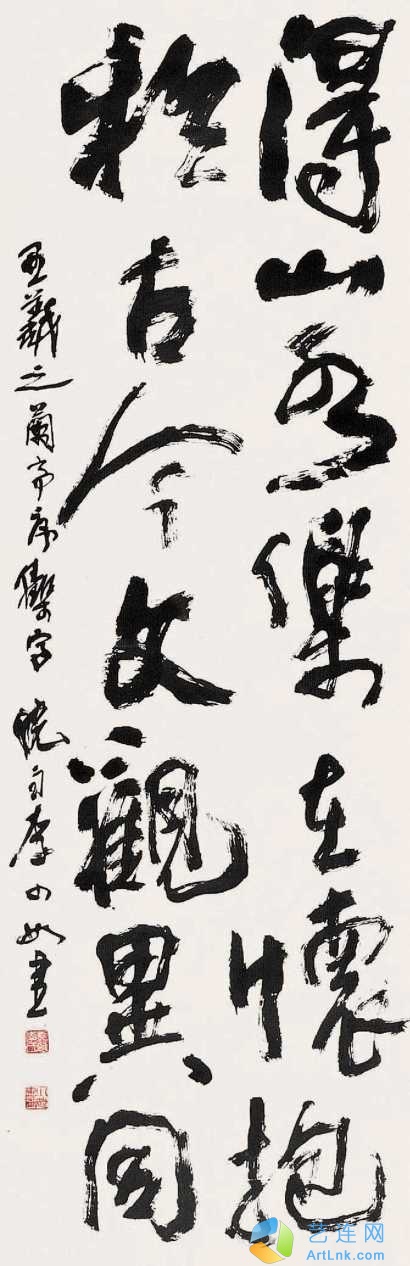 得山水樂在懷抱
於古今文觀異同
王羲之蘭亭序集字 李書
艺连网
ArtLnk.com